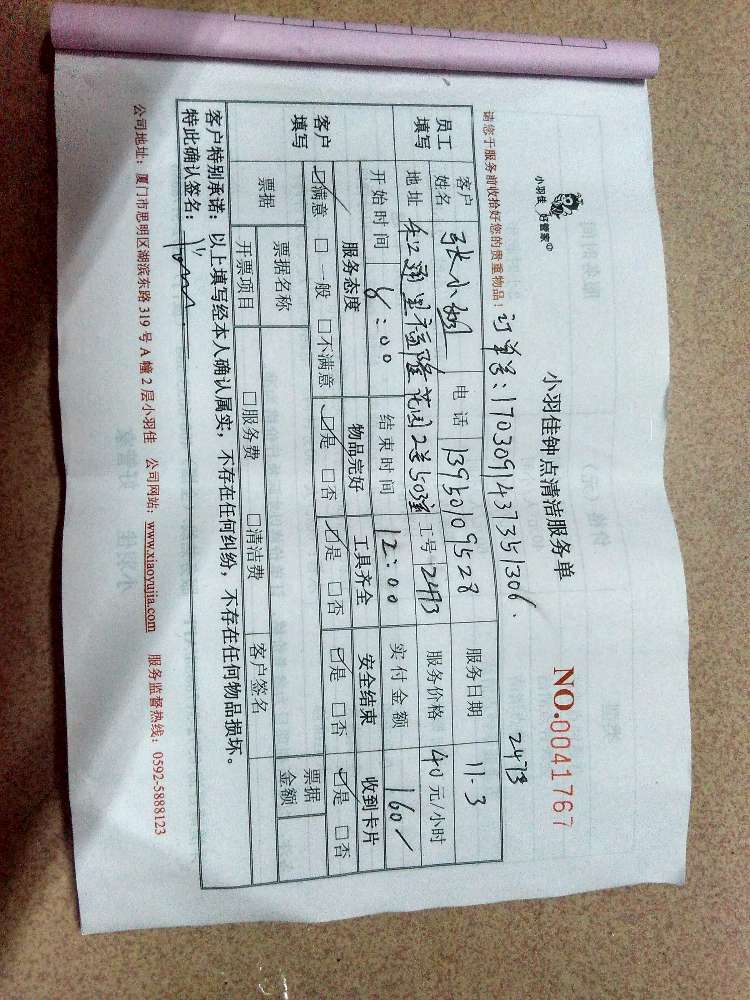 小羽佳 好管家
小羽佳钟点清洁服务单
NO.0041767
请您于服务前收拾好您的贵重物品！
订单号：1703091437351306.
2473
员工填写
客户姓名 张小姐 电话 13950109528 服务日期 11-3
地址 2号503室 工号 2473 服务价格 40元/小时
开始时间 8:00 结束时间 12:00 实付金额 160
客户填写
服务态度 物品完好 工具齐全 安全结束 收到卡片
☑满意 □一般 □不满意 ☑是 □否 ☑是 □否 ☑是 □否 ☑是 □否
票据 票据名称 票据金额
开票项目 □服务费 □清洁费 客户签名
客户特别承诺：以上填写经本人确认属实，不存在任何纠纷，不存在任何物品损坏。
特此确认签名：
公司地址：厦门市思明区湖滨东路 319 号 A 幢 2 层小羽佳 公司网站：www.xiaoyujia.com 服务监督热线：0592-5888123